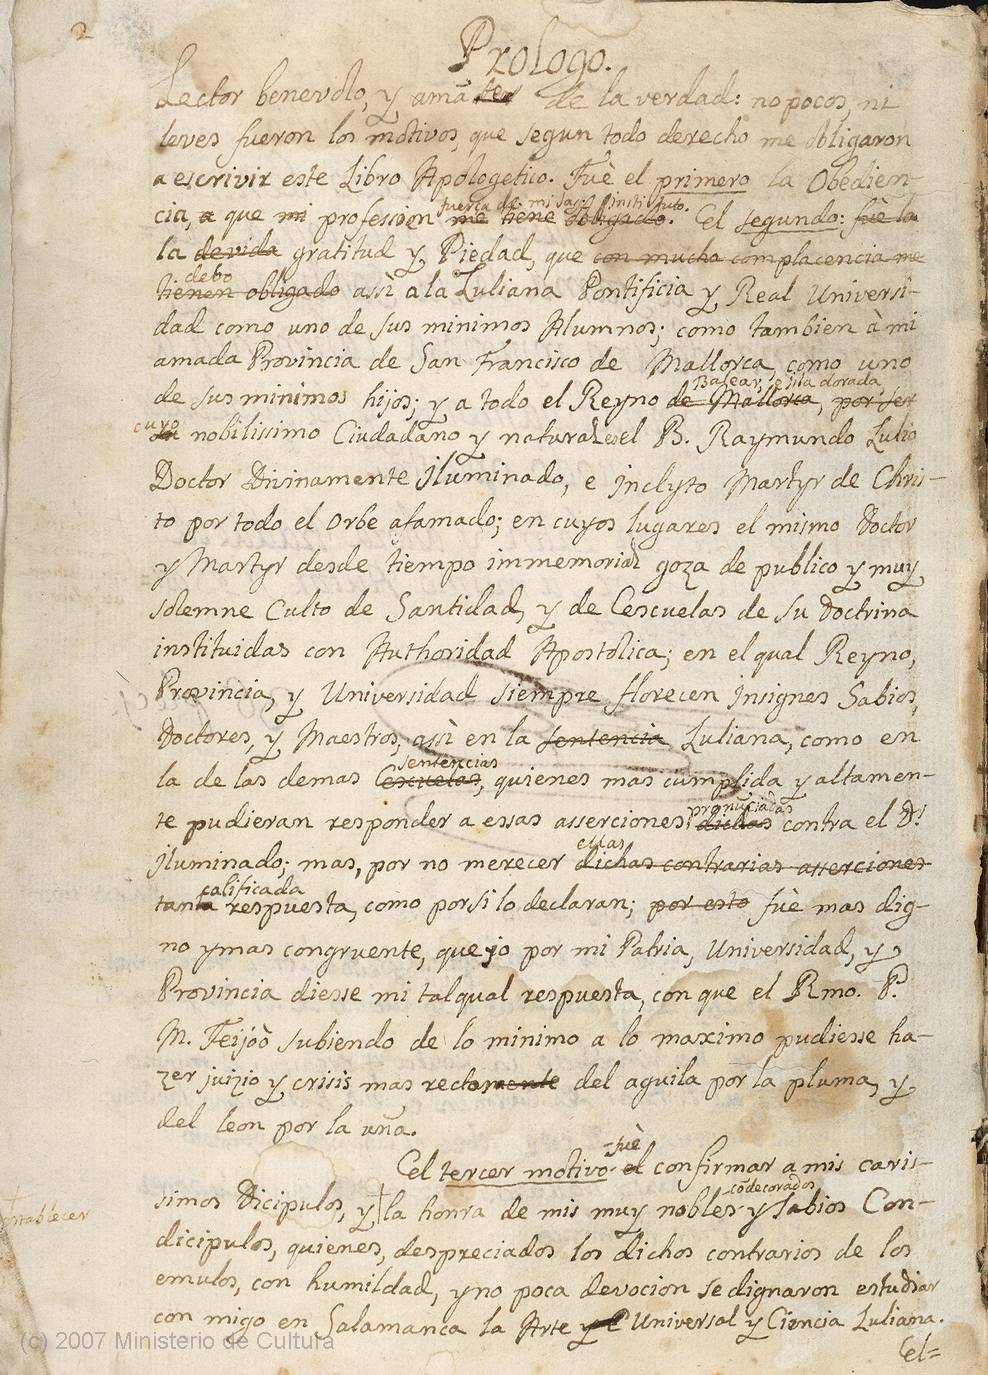 2
Prologo.
Lector benevolo, y amāter de la verdad: no pocos, ni
leves fueron los motivos, que segun todo derecho me obligaron
a escrivir este Libro Apologetico. Fuè el primero la Obedien-
fuerza de mi sagº. institº.
cia, a que mi profession me tiene obligado. El segundo: fuè la
la devida gratitud y Piedad, que con mucha complacencia me
debo
tienen obligado assì a la Luliana Pontificia y Real Universi-
dad como uno de sus minimos Alumnos; como tambien à mi
amada Provincia de San Francisco de Mallorca, como uno
Balear, e isla dorada
de sus minimos hijos; y a todo el Reyno de Mallorca, por ser
cuyo
su nobilissimo Ciudadano y natural es el B. Raymundo Lulio
Doctor Divinamente Iluminado, e inclyto Martyr de Chris-
to por todo el Orbe afamado; en cuyos lugares el mismo Doctor
y Martyr desde tiempo immemorial goza de publico y muy
solemne Culto de Santidad, y de Cescuelas de su Doctrina
instituidas con Authoridad Apostolica; en el qual Reyno,
Provincia, y Universidad siempre florecen Insignes Sabios,
Doctores, y Maestros, assì en la sentencia Luliana, como en
sentencias
la de las demas Cescuelas, quienes mas cumplida y altamen-
pronūciadas
te pudieran responder a essas asserciones dichas contra el Dr.
ellas
Iluminado; mas, por no merecer dichas contrarias asserciones
calificada
tanta respuesta, como por si lo declaran; por esto fuè mas dig-
no y mas congruente, que jo por mi Patria, Universidad, y
Provincia diesse mi talqual respuesta, con que el Rmo. P.
M. Feijoò subiendo de lo minimo a lo maximo pudiesse ha-
zer juizio y crisis mas rectamente del aguila por la pluma, y
del leon por la uña.
fuè
Cel tercer motivo el confirmar a mis caris-
cōdecorados
simos Dicipulos, y † la honra de mis muy nobles y sabios Con-
establecer
dicipulos, quienes, despreciados los dichos contrarios de los
emulos, con humildad, y no poca devocion se dignaron estudiar
con migo en Salamanca la Arte y Universal y Ciencia Luliana.
Cel=
(c) 2007 Ministerio de Cultura